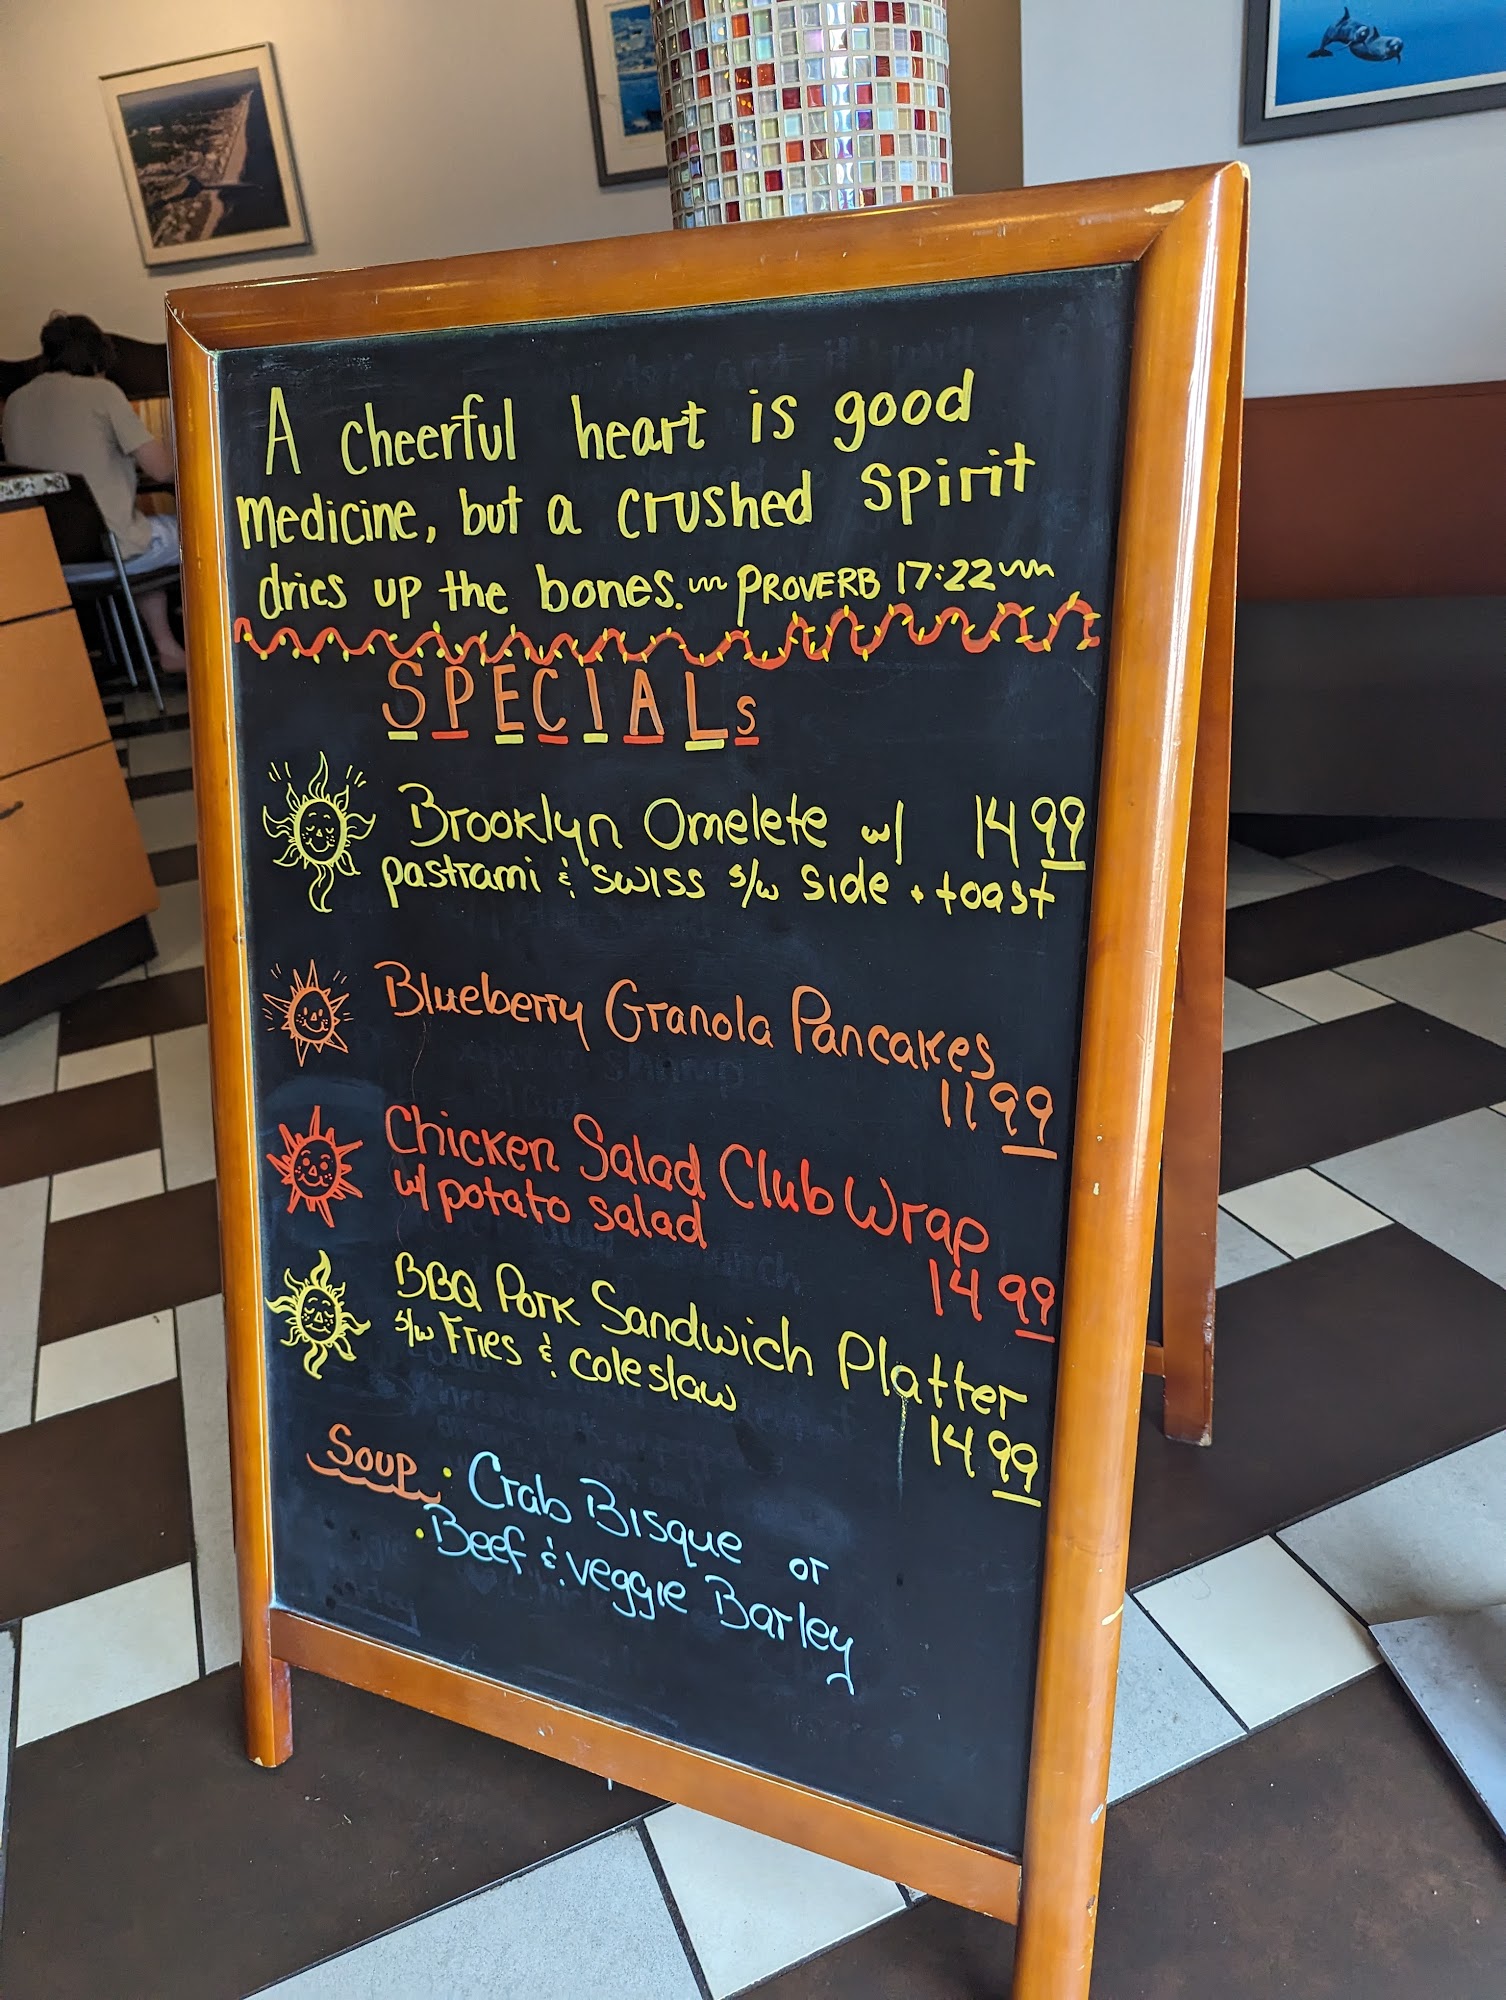 A cheerful heart is good
medicine, but a crushed spirit
dries up the bones. ~ PROVERB 17:22 ~
SPECIALs
Brooklyn Omelete w/ 14 99
pastrami & swiss s/w side + toast
Blueberry Granola Pancakes
11 99
Chicken Salad Club Wrap
w/ potato salad
14 99
BBQ Pork Sandwich Platter
s/w Fries & coleslaw
14 99
Soup • Crab Bisque or
• Beef & veggie Barley